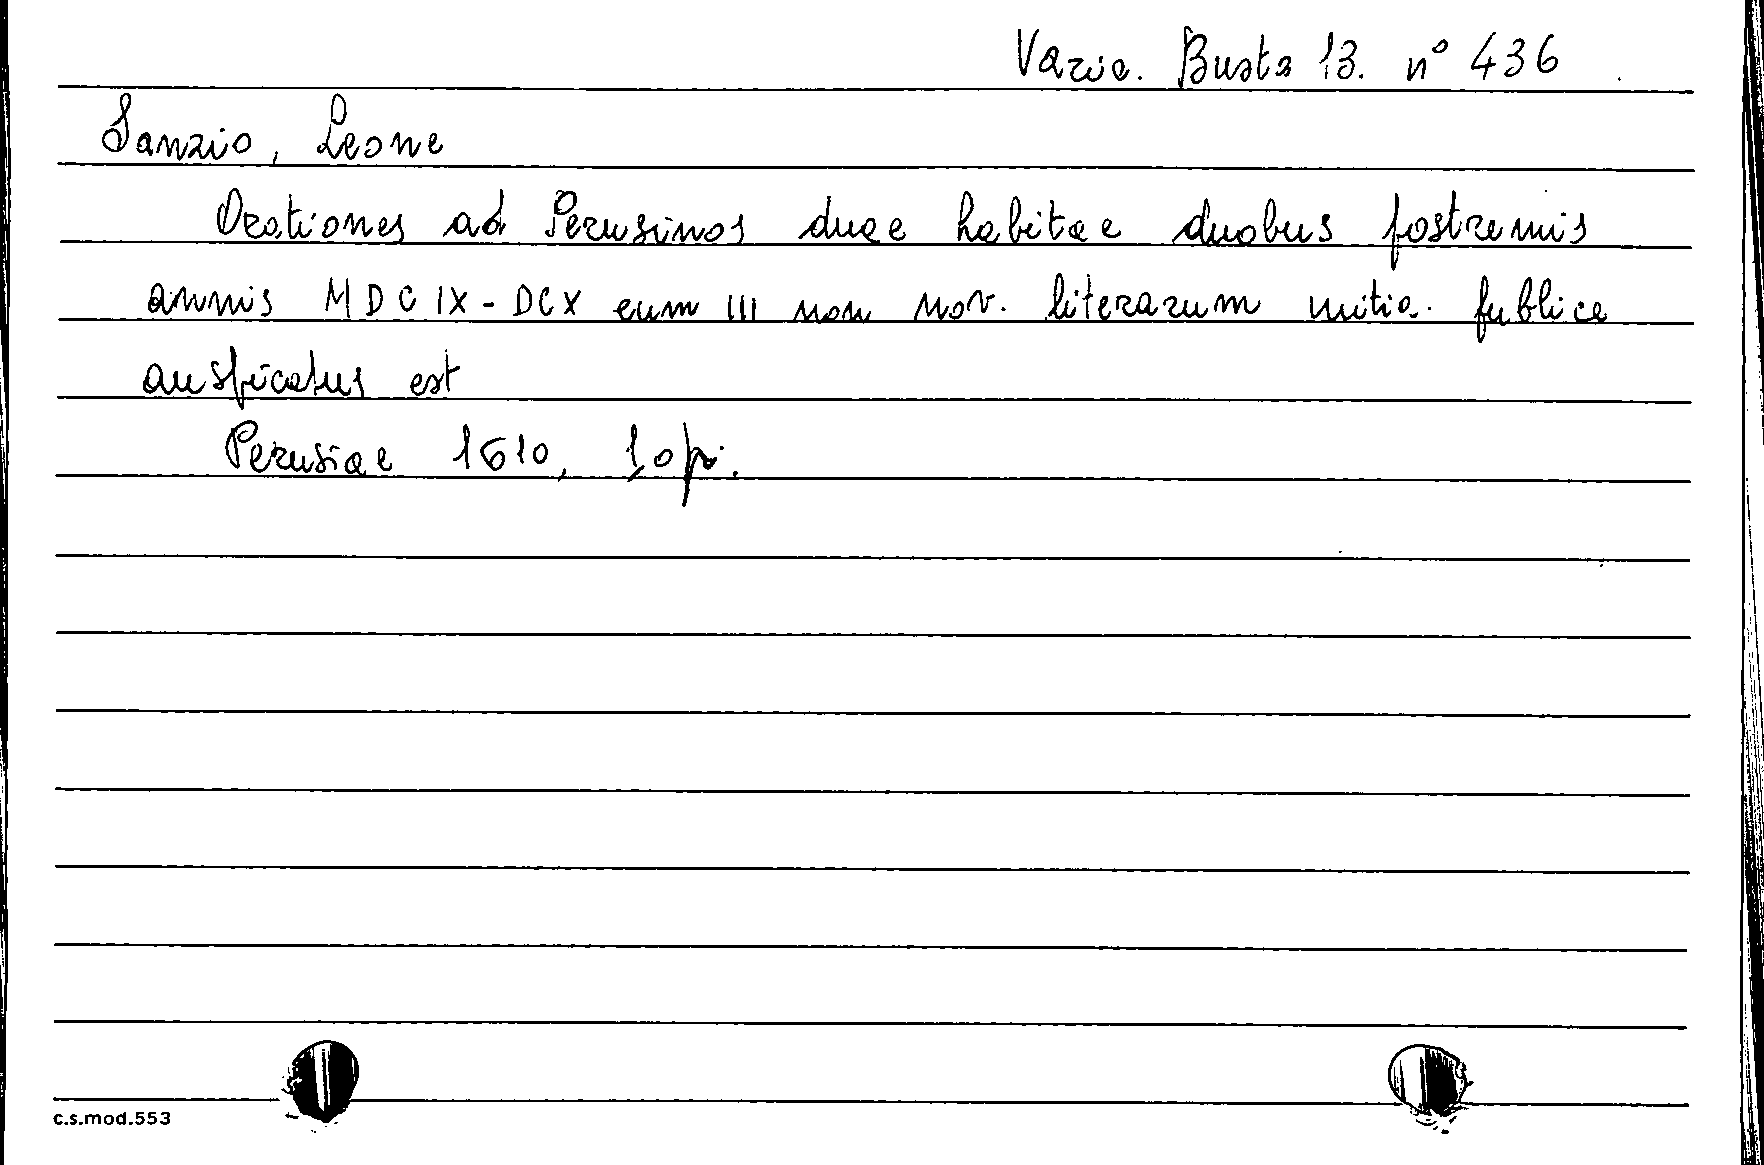 Varia. Busta 13. n° 436
Sanzio, Leone
Orationes ad Perusinos duae habitae duobus postremis
annis MDCIX-DCX eum III non nov. literarum initia publice
auspicatus est
Perusiae 1610, 10 p.
c.s.mod.553